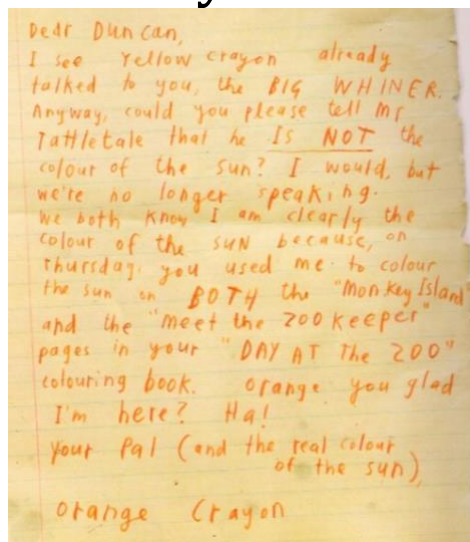 Dear Duncan,
I see Yellow crayon already
talked to you, the BIG WHINER.
Anyway, could you please tell Mr
Tattletale that he IS NOT the
colour of the sun? I would, but
we're no longer speaking.
We both know I am clearly the
colour of the sun because, on
Thursday, you used me to colour
the sun on BOTH the "Monkey Island"
and the "Meet the Zookeeper"
pages in your "DAY AT The ZOO"
colouring book. Orange you glad
I'm here? Ha!
Your Pal (and the real colour
of the sun),
Orange Crayon